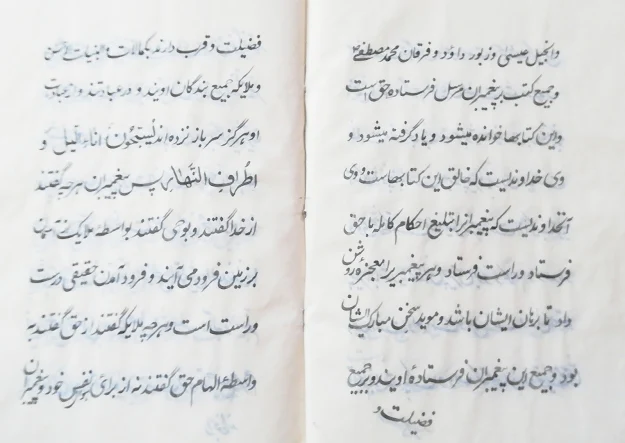 وانجیل عیسی و زبور داود و فرقان محمد مصطفی
و جمیع کتب بر پیغمبران مرسل فرستاده حق است
و این کتابها خوانده میشود و یاد گرفته میشود و
وی خداوندیست که خالق این کتابهاست و وی
آنخداوندیست که پیغمبرانرا بتبلیغ احکام کامل با حق
فرستاد و راست فرستاد و هر پیغمبر یرا معجزهٔ روشن
داد تا برهان ایشان باشد و موید سخن مبارک ایشان
بود و جمیع این پیغمبران فرستادهٔ اویند و بر جمیع
فضیلت و
فضیلت و قرب دارند بکمالات و
و ملایکه جمیع بندگان اویند و در عبادتند و از عبادت
او هرگز سر باز نزده اند یُسَبِّحُونَ اناء اللیل و
اطراف النّهار پس پیغمبران هر چه گفتند
از خدا گفتند و بوحی گفتند بواسطهٔ ملایک
بر زمین فرود می آیند و فرود آمدن حقیقی درست
و راست است و هر چه ملایکه گفتند از حق گفتند به
واسطهٔ الهام حق گفتند نه از برای نفس خود و پیغمبران